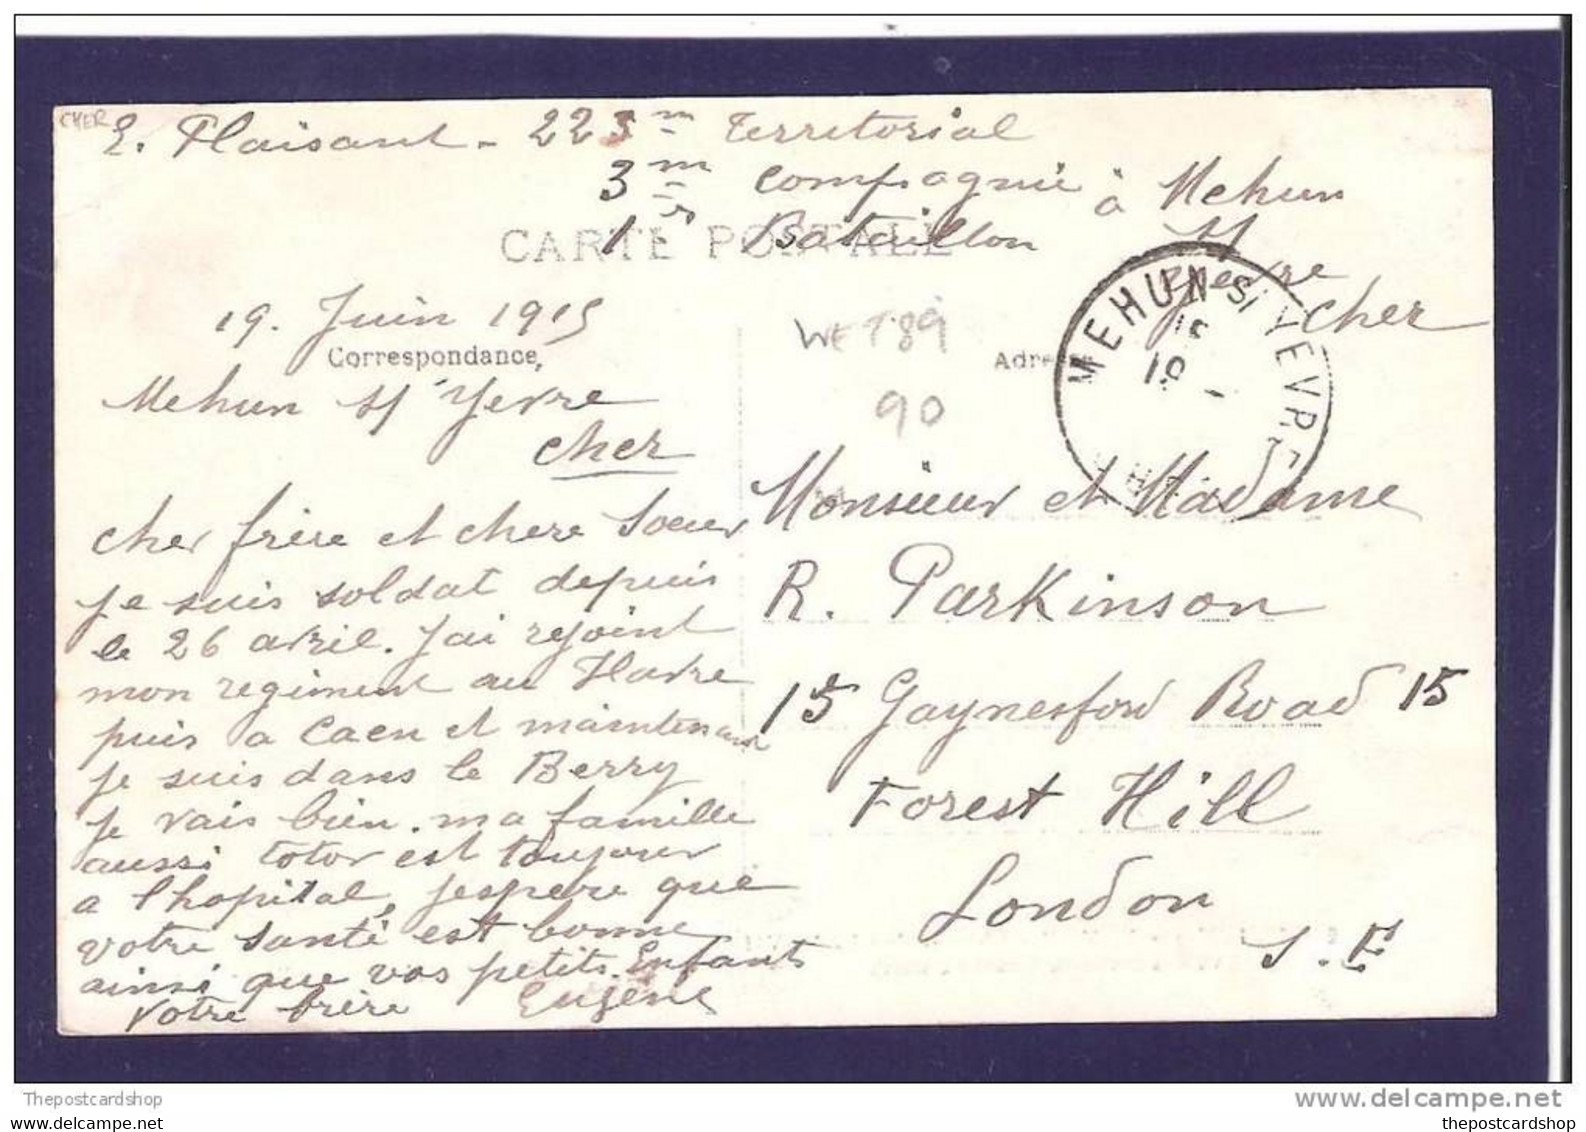 CHER
E. Plaisant - 223m Territorial
3m compagnie à Mehun
1r Bataillon S/
Yevre
Cher
CARTE POSTALE
19. Juin 1915
Correspondance,
WET89
90
MEHUN S/ YEVRE
Mehun S/ Yevre
Cher
cher frère et chere Soeur
je suis soldat depuis
le 26 avril. J'ai rejoint
mon regiment au Havre
puis a Caen et maintenant
je suis dans le Berry
je vais bien. ma famille
aussi totor est toujour
a l'hopital, j'espere que
votre santé est bonne
ainsi que vos petits Enfants
Votre frère Eugene
Monsieur et Madame
R. Parkinson
15 Gaynesford Road 15
Forest Hill
London
S. E
Thepostcardshop
www.delcampe.net
thepostcardshop